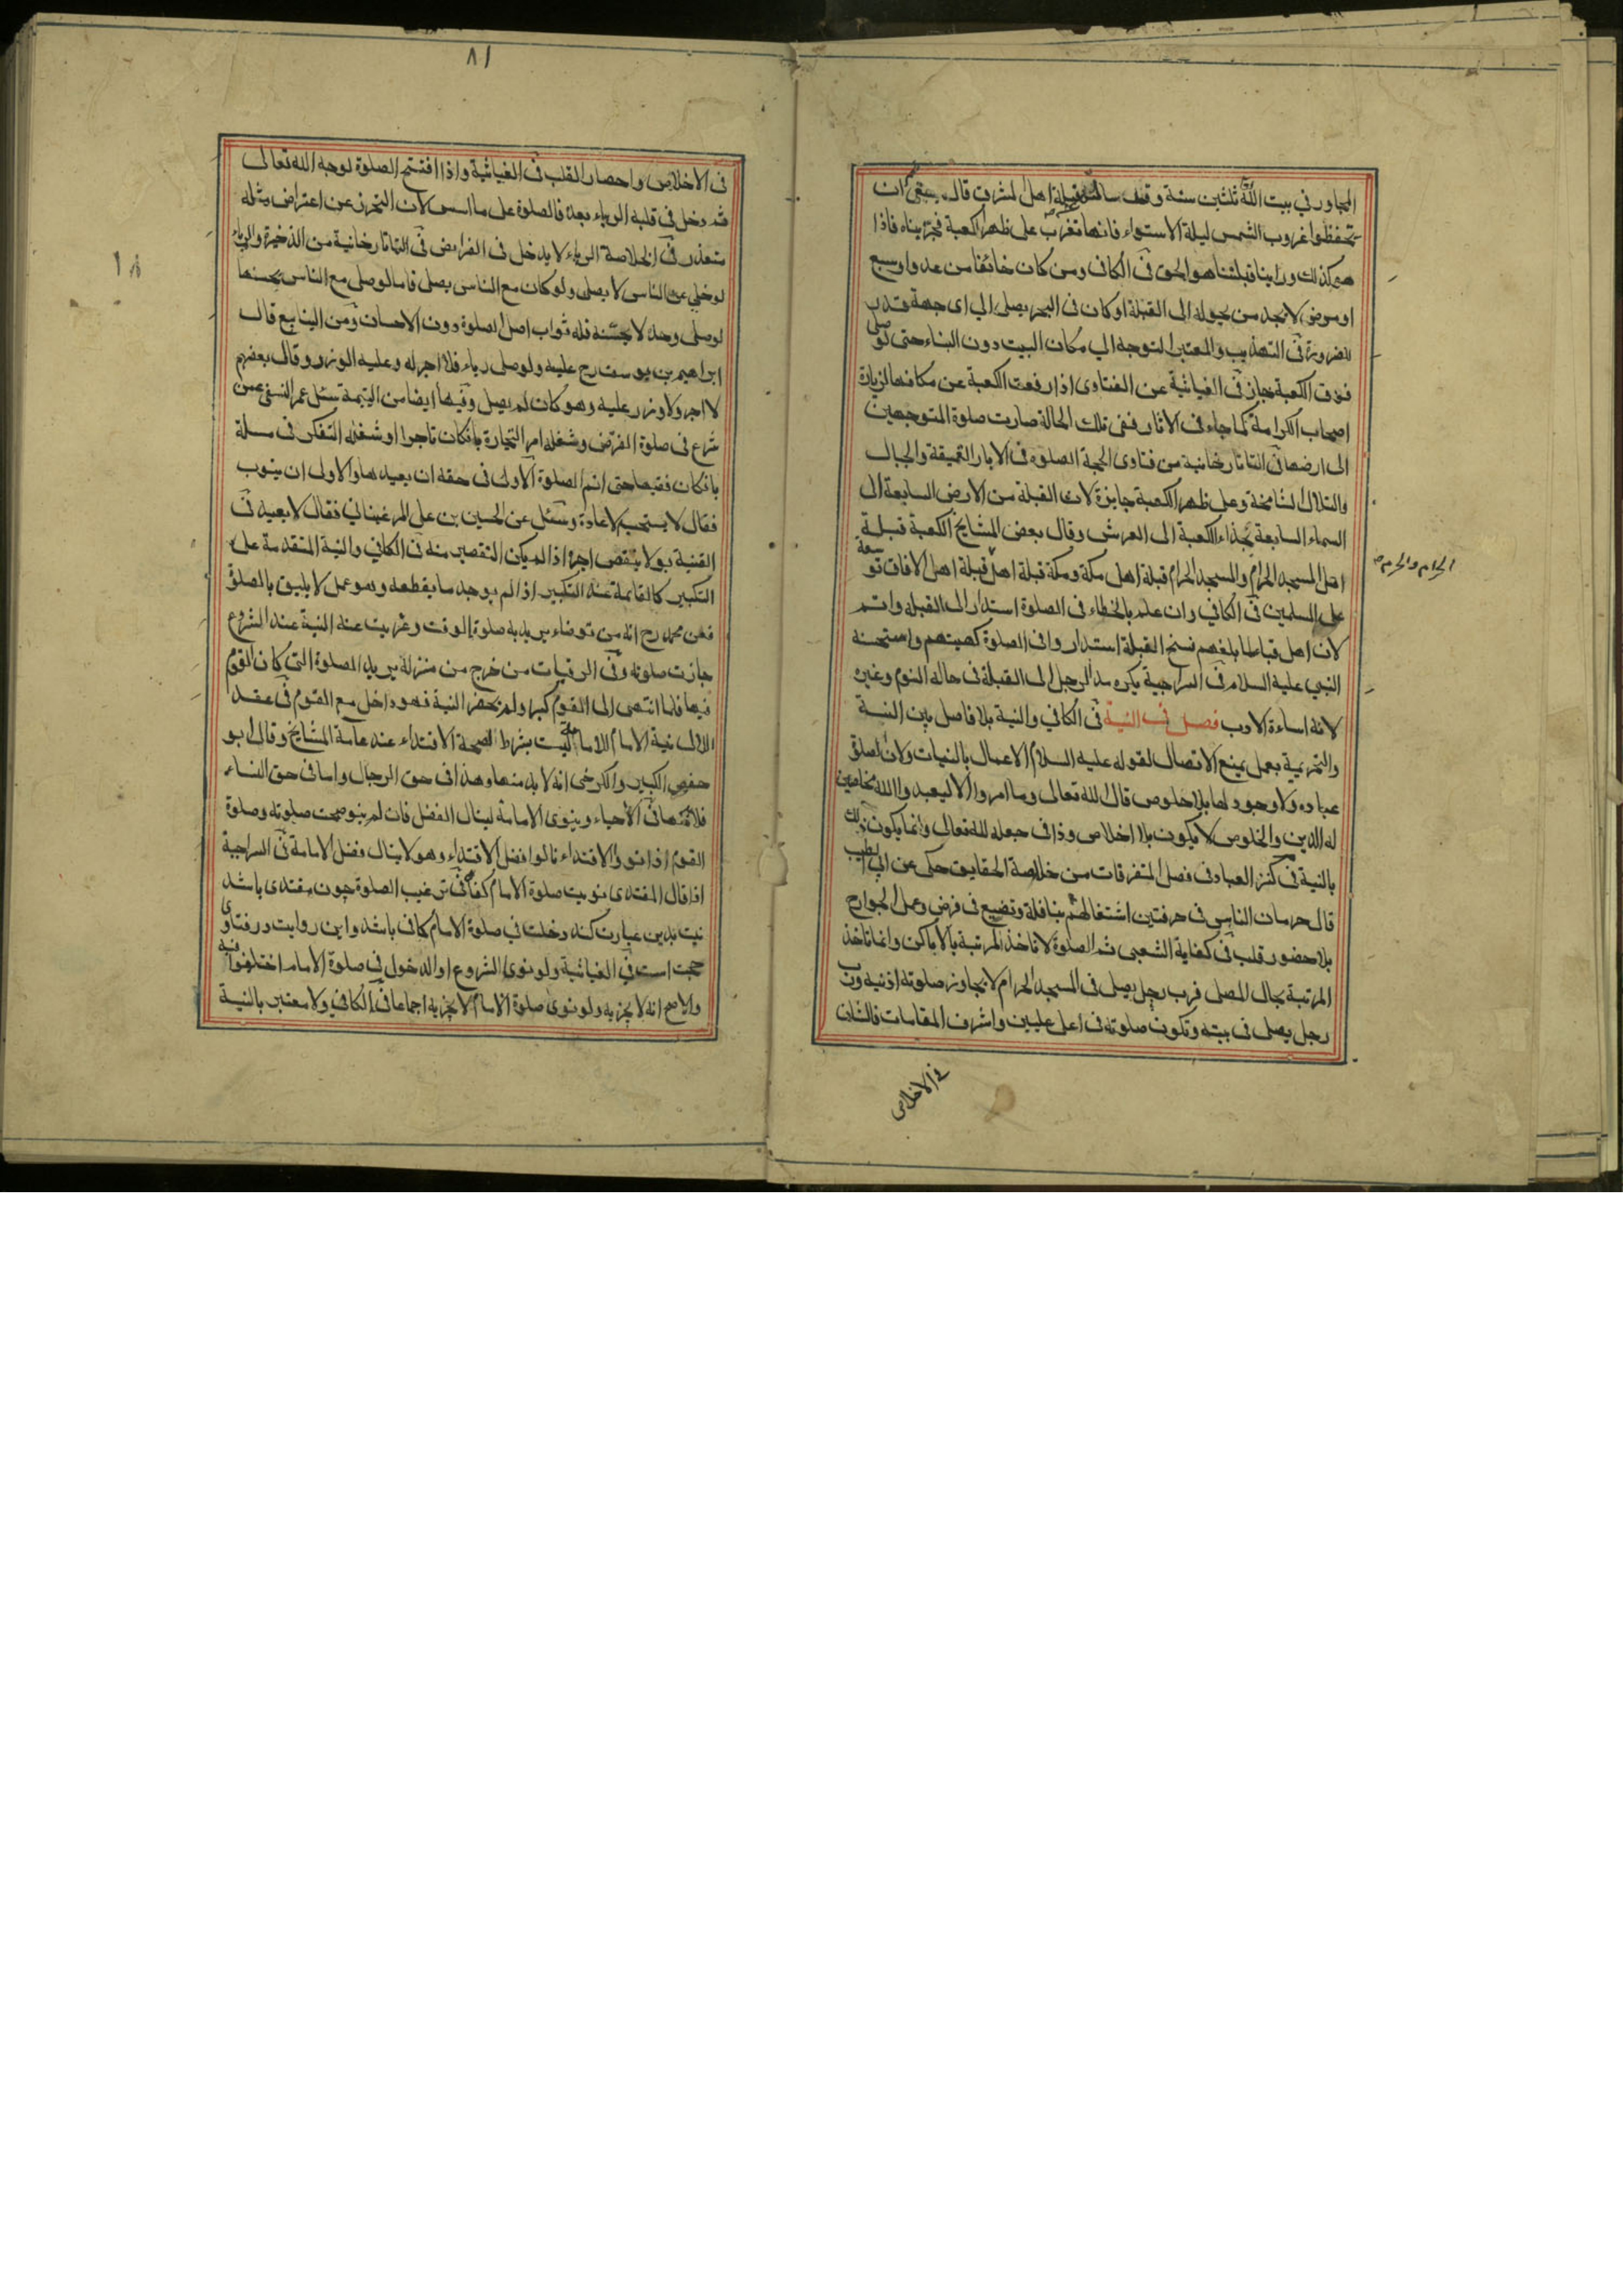 المجاور في بيت الله ثلثين سنة وقف سالته قبلة اهل المشرق قال ينبغي ان
تحفظوا غروب الشمس ليلة الاستواء فانها تغرب على ظهر الكعبة فجربناه فاذا
هو كذلك وراينا قبلتنا هو الحق في الكافي ومن كان خائفا من عدو او سبع
او مريض لا يجد من يحوله الى القبلة او كان في البحر يصلي الى اى جهة قدر
للضرورة في التهذيب والمعتبر التوجه الي مكان البيت دون البناء حتى لو صلى
فوق الكعبة جاز في الغياثية عن الفتاوى اذا رفعت الكعبة عن مكانها لزيارة
اصحاب الكرامة كما جاء في الاثار ففي تلك الحالة صارت صلوة المتوجهين
الى ارضها في التاتارخانية من فتاوى الحجة الصلوة في الابار العميقة والجبال
والتلال الشامخة وعلى ظهر الكعبة جايزة لان القبلة من الارض السابعة الى
السماء السابعة بحذاء الكعبة الى العرش وقال بعض المشايخ الكعبة قبلة
اهل المسجد الحرام والمسجد الحرام قبلة اهل مكة ومكة قبلة اهل قبلة اهل الافاق توسعة
الحرام والحرم
على المسلمين في الكافي وان علم بالخطاء في الصلوة استدار الى القبلة واتم
لان اهل قبا لما بلغهم نسخ القبلة استداروا في الصلوة كهيئتهم واستحسنه
النبي عليه السلام في السراجية يكره مد الرجل الى القبلة في حالة النوم وغيره
لانه اساءة الادب فصل في النية في الكافي والنية بلا فاصل بين النية
والتحريمة بعمل يمنع الاتصال لقوله عليه السلام الاعمال بالنيات ولان الصلوة
عبادة ولا وجود لها بلا خلوص قال الله تعالى وما امروا الا ليعبدوا الله مخلصين
له الدين والخلوص لا يكون بلا اخلاص وذا في جعله لله تعالى وانما يكون ذلك
بالنية في كنز العباد في فصل المتفرقات من خلاصة الحقايق حكى عن ابي الطيب
قال حرمان الناس في حرفتين اشتغالهم بنافلة وتضييع في فرض وعمل الجوارح
بلا حضور قلب في كفاية الشعبي ثم الصلوة لا تاخذ المرتبة بالاماكن وانما تاخذ
المرتبة بحال المصلي فرب رجل يصلي في المسجد الحرام لا يجاوز صلوته اذنيه ورب
رجل يصلي في بيته وتكون صلوته في اعلى عليين واشرف المقامات فالشان
في الاخلاص
٨١
في الاخلاص واحضار القلب في الغياثية واذا افتتح الصلوة لوجه الله تعالى
ثم دخل في قلبه الرياء بعده فالصلوة على ما اسس لان التحرز عن اعتراض مثله
متعذر في الخلاصة الرياء لا يدخل في الفرايض في التاتارخانية من الذخيرة والرياء
لو خلي عن الناس لا يصلي ولو كان مع الناس يصلي فاما لو صلى مع الناس يحسنها
لو صلى وحده لا يحسنه فله ثواب اصل الصلوة دون الاحسان ومن الينابيع قال
ابراهيم بن يوسف رح عليه ولو صلى رياء فلا اجر له وعليه الوزر وقال بعضهم
لا اجر ولا وزر عليه وهو كان لم يصل وفيها ايضا من اليتيمة سئل عمر النسفي عمن
شرع في صلوة الفرض وشغله امر التجارة بانكان تاجرا او شغله التفكر في مسلة
بانكان فقيها حتى اتم الصلوة الاولى في حقه ان يعيدها والاولى ان ينوب
فقال لا يستحب الاعادة وسئل عن الحسين بن علي المرغيناني فقال لا يعيد في
القنية بو لا ينقص اجره اذا لم يكن التقصير منه في الكافي والنية المتقدمة على
التكبير كالقائمة عند التكبير اذا لم يوجد ما يقطعه وهو عمل لا يليق بالصلوة
فعن محمد رح انه من توضاء يريد به صلوة الوقت وغربت عنه النية عند الشروع
جازت صلوته وفي الرقيات من خرج من منزله يريد الصلوة التي كان القوم
فيها فلما انتهى الى القوم كبر ولم تحضر النية فهو داخل مع القوم في عقد
اللال نية الامام الامامة ليست بشرط لصحة الاقتداء عند عامة المشايخ وقال ابو
حفص الكبير والكرخي انه لا بد منها وهذا في حق الرجال واما في حق النساء
في الاحياء وينوى الامامة لينال الفضل فان لم ينو صحت صلوته وصلوة
القوم اذا نووا الاقتداء نالوا فضل الاقتداء وهو لا ينال فضل الامامة في السراجية
اذا قال المقتدى نويت صلوة الامام كفاه في ترغيب الصلوة چون مقتدى باشد
نيت بدين عبارت كند دخلت في صلوة الامام كافى باشد واين روايت در فتاوى
حجت است في الغياثية ولو نوى الشروع او الدخول في صلوة الامام اختلفوا فيه
والاصح انه لا يجزيه ولو نوى صلوة الامام لا يجزيه اجماعا في الكافي ولا معتبر بالنية